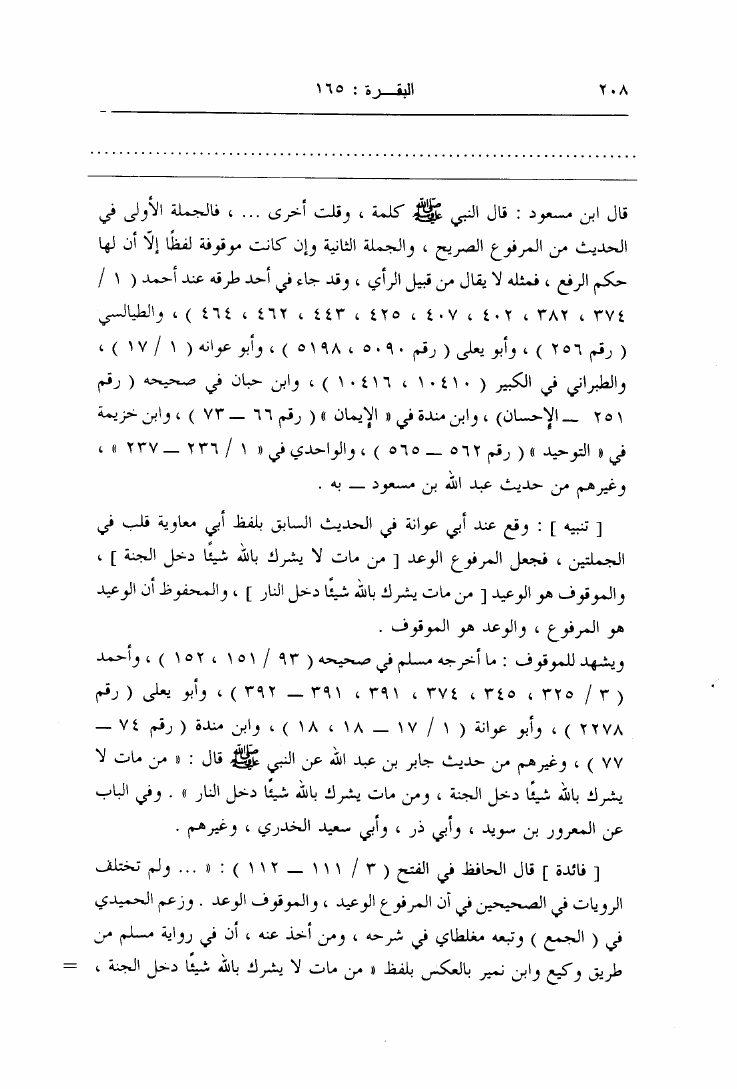 ٢٠٨ البقـــرة : ١٦٥
قال ابن مسعود : قال النبي ﷺ كلمة ، وقلت أخرى ... ، فالجملة الأولى في
الحديث من المرفوع الصريح ، والجملة الثانية وإن كانت موقوفة لفظًا إلّا أن لها
حكم الرفع ، فمثله لا يقال من قبيل الرأي ، وقد جاء في أحد طرقه عند أحمد ( ١ /
٣٧٤ ، ٣٨٢ ، ٤٠٢ ، ٤٠٧ ، ٤٢٥ ، ٤٤٣ ، ٤٦٢ ، ٤٦٤ ) ، والطيالسي
( رقم ٢٥٦ ) ، وأبو يعلى ( رقم ٥٠٩٠ ، ٥١٩٨ ) ، وأبو عوانه ( ١ / ١٧ ) ،
والطبراني في الكبير ( ١٠٤١٠ ، ١٠٤١٦ ) ، وابن حبان في صحيحه ( رقم
٢٥١ ــ الإحسان) ، وابن مندة في « الإيمان » ( رقم ٦٦ ــ ٧٣ ) ، وابن خزيمة
في « التوحيد » ( رقم ٥٦٢ ــ ٥٦٥ ) ، والواحدي في « ١ / ٢٣٦ ــ ٢٣٧ » ،
وغيرهم من حديث عبد الله بن مسعود ــ به .
[ تنبيه ] : وقع عند أبي عوانة في الحديث السابق بلفظ أبي معاوية قلب في
الجملتين ، فجعل المرفوع الوعد [ من مات لا يشرك بالله شيئًا دخل الجنة ] ،
والموقوف هو الوعيد [ من مات يشرك بالله شيئًا دخل النار ] ، والمحفوظ أن الوعيد
هو المرفوع ، والوعد هو الموقوف .
ويشهد للموقوف : ما أخرجه مسلم في صحيحه ( ٩٣ / ١٥١ ، ١٥٢ ) ، وأحمد
( ٣ / ٣٢٥ ، ٣٤٥ ، ٣٧٤ ، ٣٩١ ، ٣٩١ ــ ٣٩٢ ) ، وأبو يعلى ( رقم
٢٢٧٨ ) ، وأبو عوانة ( ١ / ١٧ ــ ١٨ ، ١٨ ) ، وابن مندة ( رقم ٧٤ ــ
٧٧ ) ، وغيرهم من حديث جابر بن عبد الله عن النبي ﷺ قال : « من مات لا
يشرك بالله شيئًا دخل الجنة ، ومن مات يشرك بالله شيئًا دخل النار » . وفي الباب
عن المعرور بن سويد ، وأبي ذر ، وأبي سعيد الخدري ، وغيرهم .
[ فائدة ] قال الحافظ في الفتح ( ٣ / ١١١ ــ ١١٢ ) : « ... ولم تختلف
الرويات في الصحيحين في أن المرفوع الوعيد ، والموقوف الوعد . وزعم الحميدي
في ( الجمع ) وتبعه مغلطاي في شرحه ، ومن أخذ عنه ، أن في رواية مسلم من
طريق وكيع وابن نمير بالعكس بلفظ « من مات لا يشرك بالله شيئًا دخل الجنة ، =